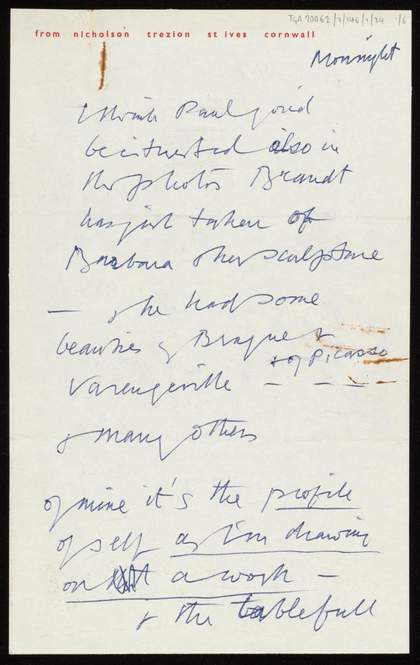 TGA 90062/1/146/1/24 1/6
from nicholson trezion st ives cornwall
Mon night
I think Paul you'd
be interested also in
the photos Brandt
has just taken of
Barbara & her sculpture
— & he had some
beauties of Braque &
& of Picasso
Varengeville — — —
& many others
of mine it's the profile
of self as I'm drawing
on a work —
& the tablefull